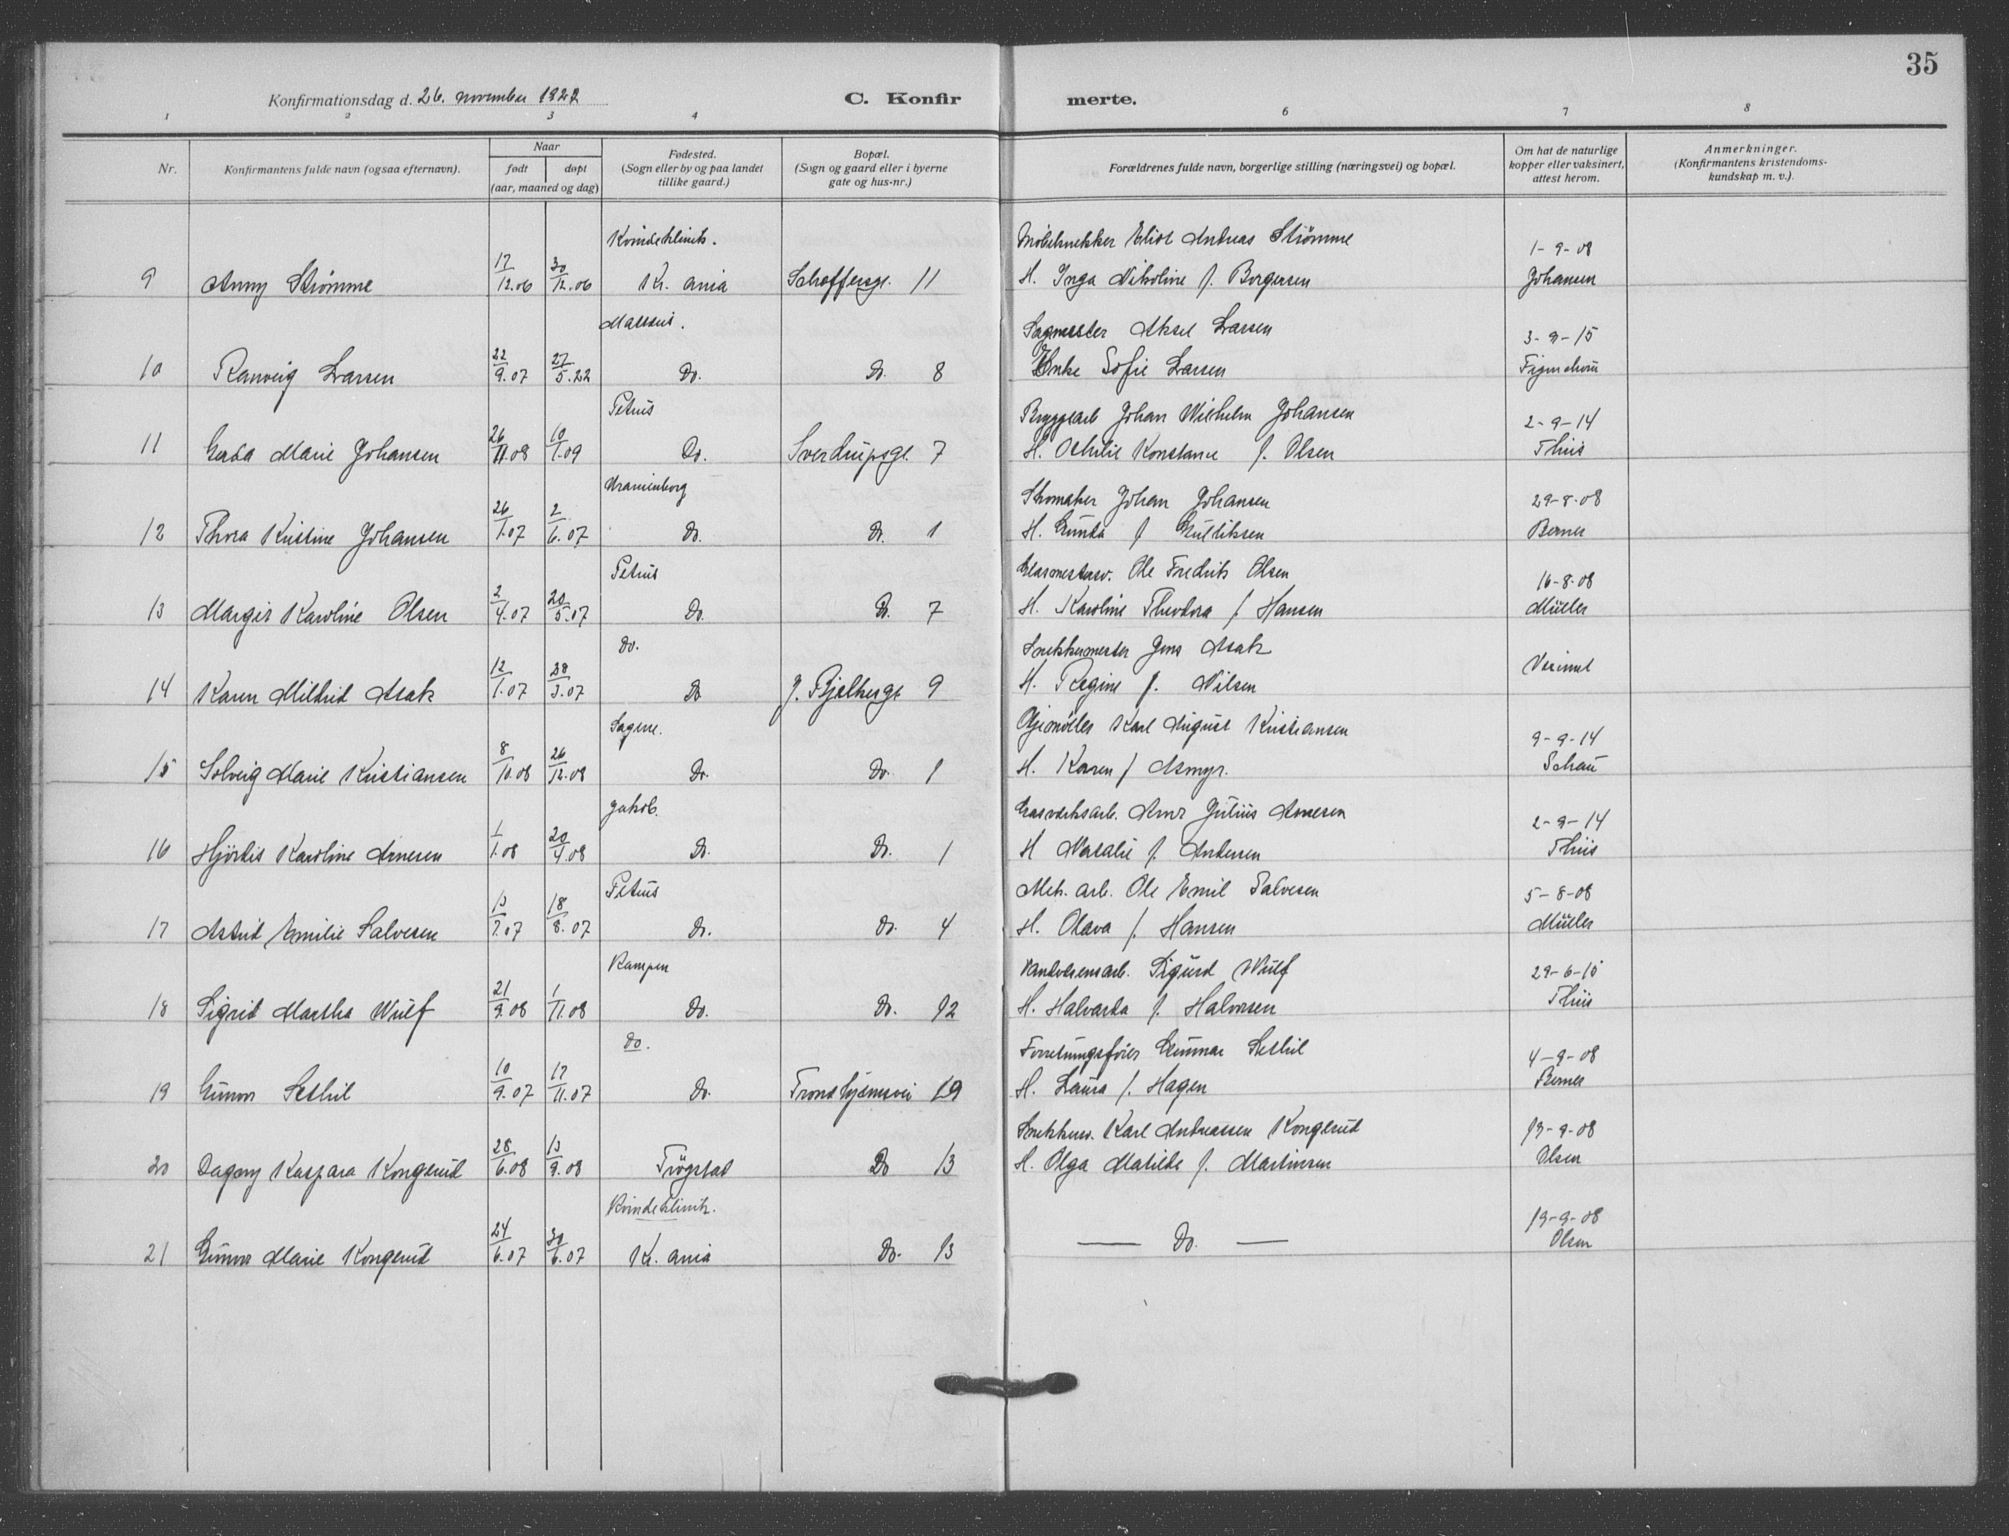 35
Konfirmationsdag d. 26. november 1922
C. Konfirmerte.
1 2 3 4 6 7 8
Nr.
Konfirmantens fulde navn (ogsaa efternavn).
Naar
født døpt
(aar, maaned og dag)
Fødested.
(Sogn eller by og paa landet
tillike gaard.)
Bopæl.
(Sogn og gaard eller i byerne
gate og hus-nr.)
Forældrenes fulde navn, borgerlige stilling (næringsvei) og bopæl.
Om hat de naturlige
kopper eller vaksinert,
attest herom.
Anmerkninger.
(Konfirmantens kristendoms-
kundskap m. v.).
Kvindeklinik. Møbelsnekker Andreas Strømme 1-9-08
9 Anny Strømme 17/12.06 30/12.06 Kr. ania Schaffersgt. 11 H. Inga Nikoline f. Borgersen Johansen
Matteus. Sagmester Aksel Larsen 3-9-15
10 Ranveig Larsen 22/9.07 27/5.22 Do. Do. 8 Enke Sofie Larsen
Petrus Bryggearb Johan Wilhelm Johansen 2-9-14
11 Gerda Marie Johansen 26/11.08 10/1.09 Do. Sverdrupsgt. 7 H. Othilie Konstanse f. Olsen Thiis
Uranienborg Skomaker Johan Johansen 29-8-08
12 Thora Kristine Johansen 26/1.07 2/6.07 Do. Do. 1 H. Gunda f Gulliksen Berner
Petrus Ole Fredrik Olsen 16-8-08
13 Margit Karoline Olsen 2/4.07 20/5.07 Do. Do. 7 H. Karoline Theodora f. Hansen Müller
Do. Snekkermester Jens Asak
14 Karen Mildrid Asak 12/1.07 28/3.07 Do J. Bjelkesgt 9 H. Regine f. Nilsen
Sagene. Karl August Kristiansen 9-9-14
15 Solveig Marie Kristiansen 8/10.08 26/12.08 Do. Do. 1 H. Karen f Asmyr. Schau
Jakob. Gasverksarb. Arnt Julius Arnesen 2-9-14
16 Hjördis Karoline Arnesen 1/1.08 20/4.08 Do. Do. 1 H Natalie f. Andersen Thiis
Petrus Mek. arb. Ole Emil Salvesen 5-8-08
17 Astrid Emilie Salvesen 13/7.07 18/8.07 Do. Do. 4 H. Olava f. Hansen Müller
Kampen Sigurd Wulf 29-6-15
18 Sigrid Martha Wulf 21/9.08 1/11.08 Do. Do. 12 H. Halvarda f. Halvorsen Thiis
Do. Forretningsfører Gunnar Sethil 4-9-08
19 Gunvor Sethil 10/9.07 17/11.07 Do. Trondhjemsvei 19 H. Laura f. Hagen Berner
Snekkerm. Karl Andreassen Kongerud 19-9-08
20 Dagny Kaspara Kongerud 28/6.08 13/9.08 Trögstad Do 13 H. Olga Matilde f. Martinsen Olsen
Kvindeklinik. 19-9-08
21 Gunvor Marie Kongerud 24/6.07 30/6.07 Kr. ania Do. 13 — Do. — Olsen